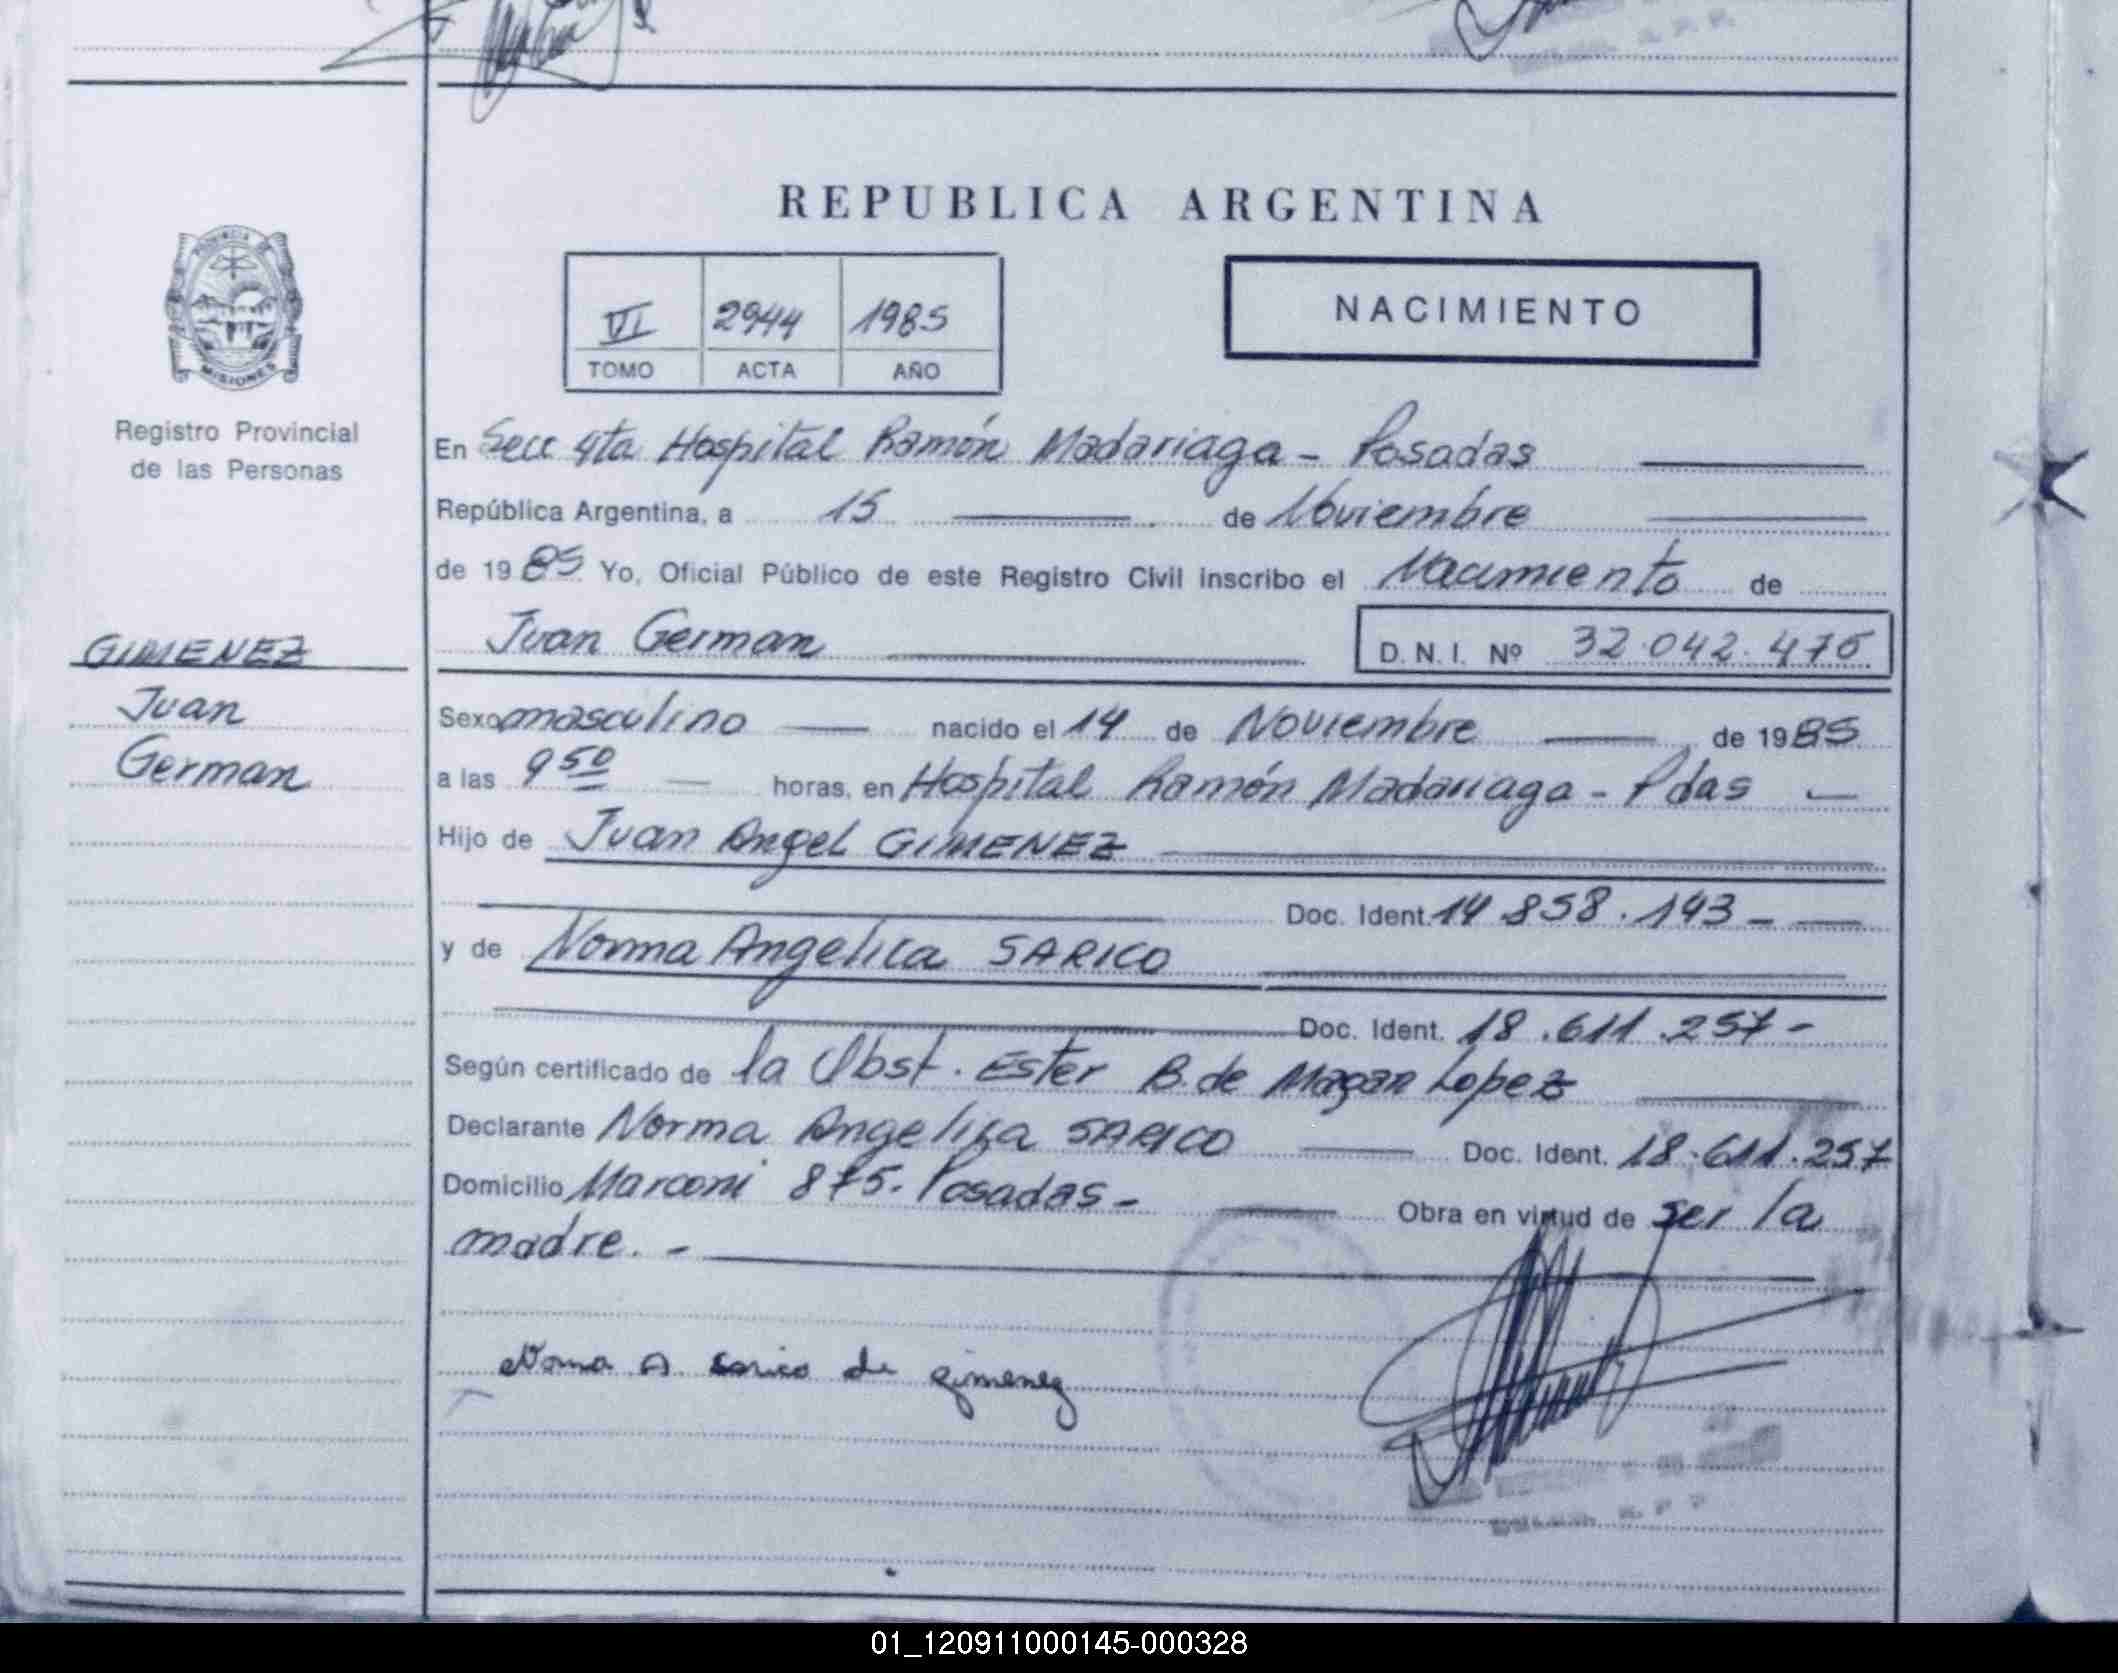 REPUBLICA ARGENTINA
PROVINCIA DE
MISIONES
Registro Provincial
de las Personas
VI 2944 1985
TOMO ACTA AÑO
NACIMIENTO
En Secc 4ta Hospital Ramón Madariaga - Posadas
República Argentina, a 15 de Noviembre
de 1985 Yo, Oficial Público de este Registro Civil inscribo el Nacimiento de
Juan German D. N. I. Nº 32.042.475
GIMENEZ
Juan
German
Sexo masculino nacido el 14 de Noviembre de 1985
a las 9 50 horas, en Hospital Ramón Madariaga - Pdas
Hijo de Juan Angel GIMENEZ
Doc. Ident. 14.858.143 -
y de Norma Angelica SARICO
Doc. Ident. 18.611.257 -
Según certificado de la Obst. Ester B. de Magan Lopez
Declarante Norma Angelica SARICO Doc. Ident. 18.611.257
Domicilio Marconi 875. Posadas - Obra en virtud de ser la
madre. -
Norma A Sarico de gimenez
01_120911000145-000328